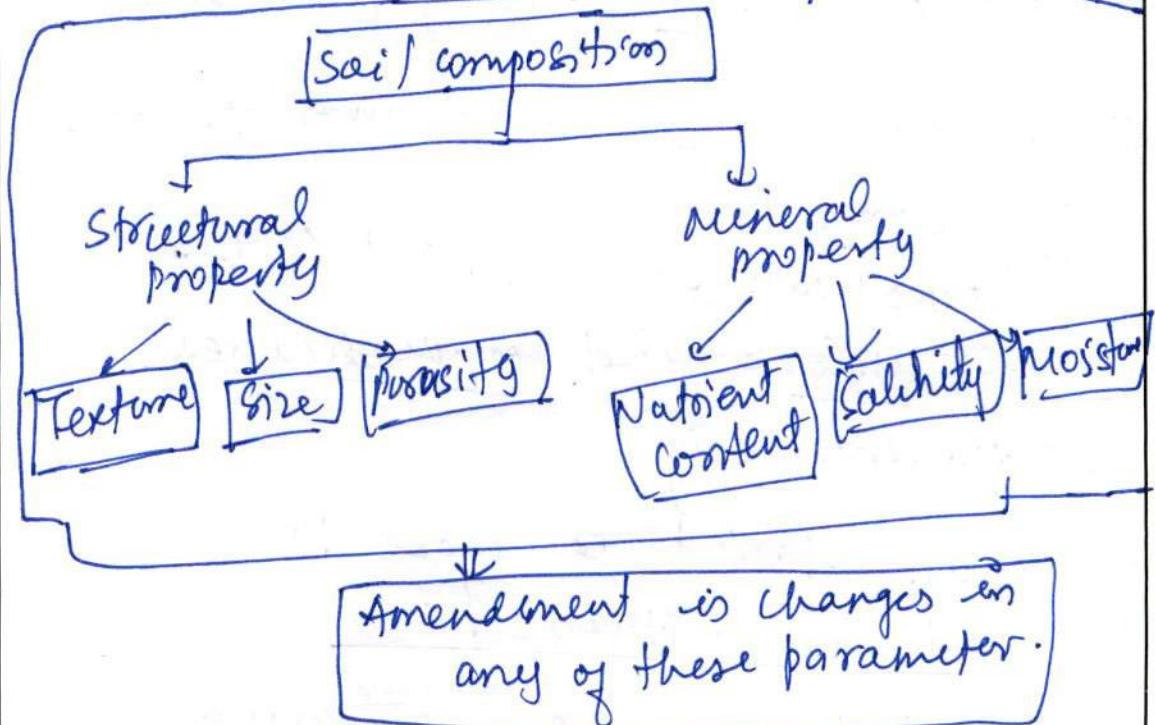 Soil composition
Structural
property
Mineral
property
Texture
Size
Porosity
Nutrient
content
Salinity
Amendment is changes in
any of these parameter.